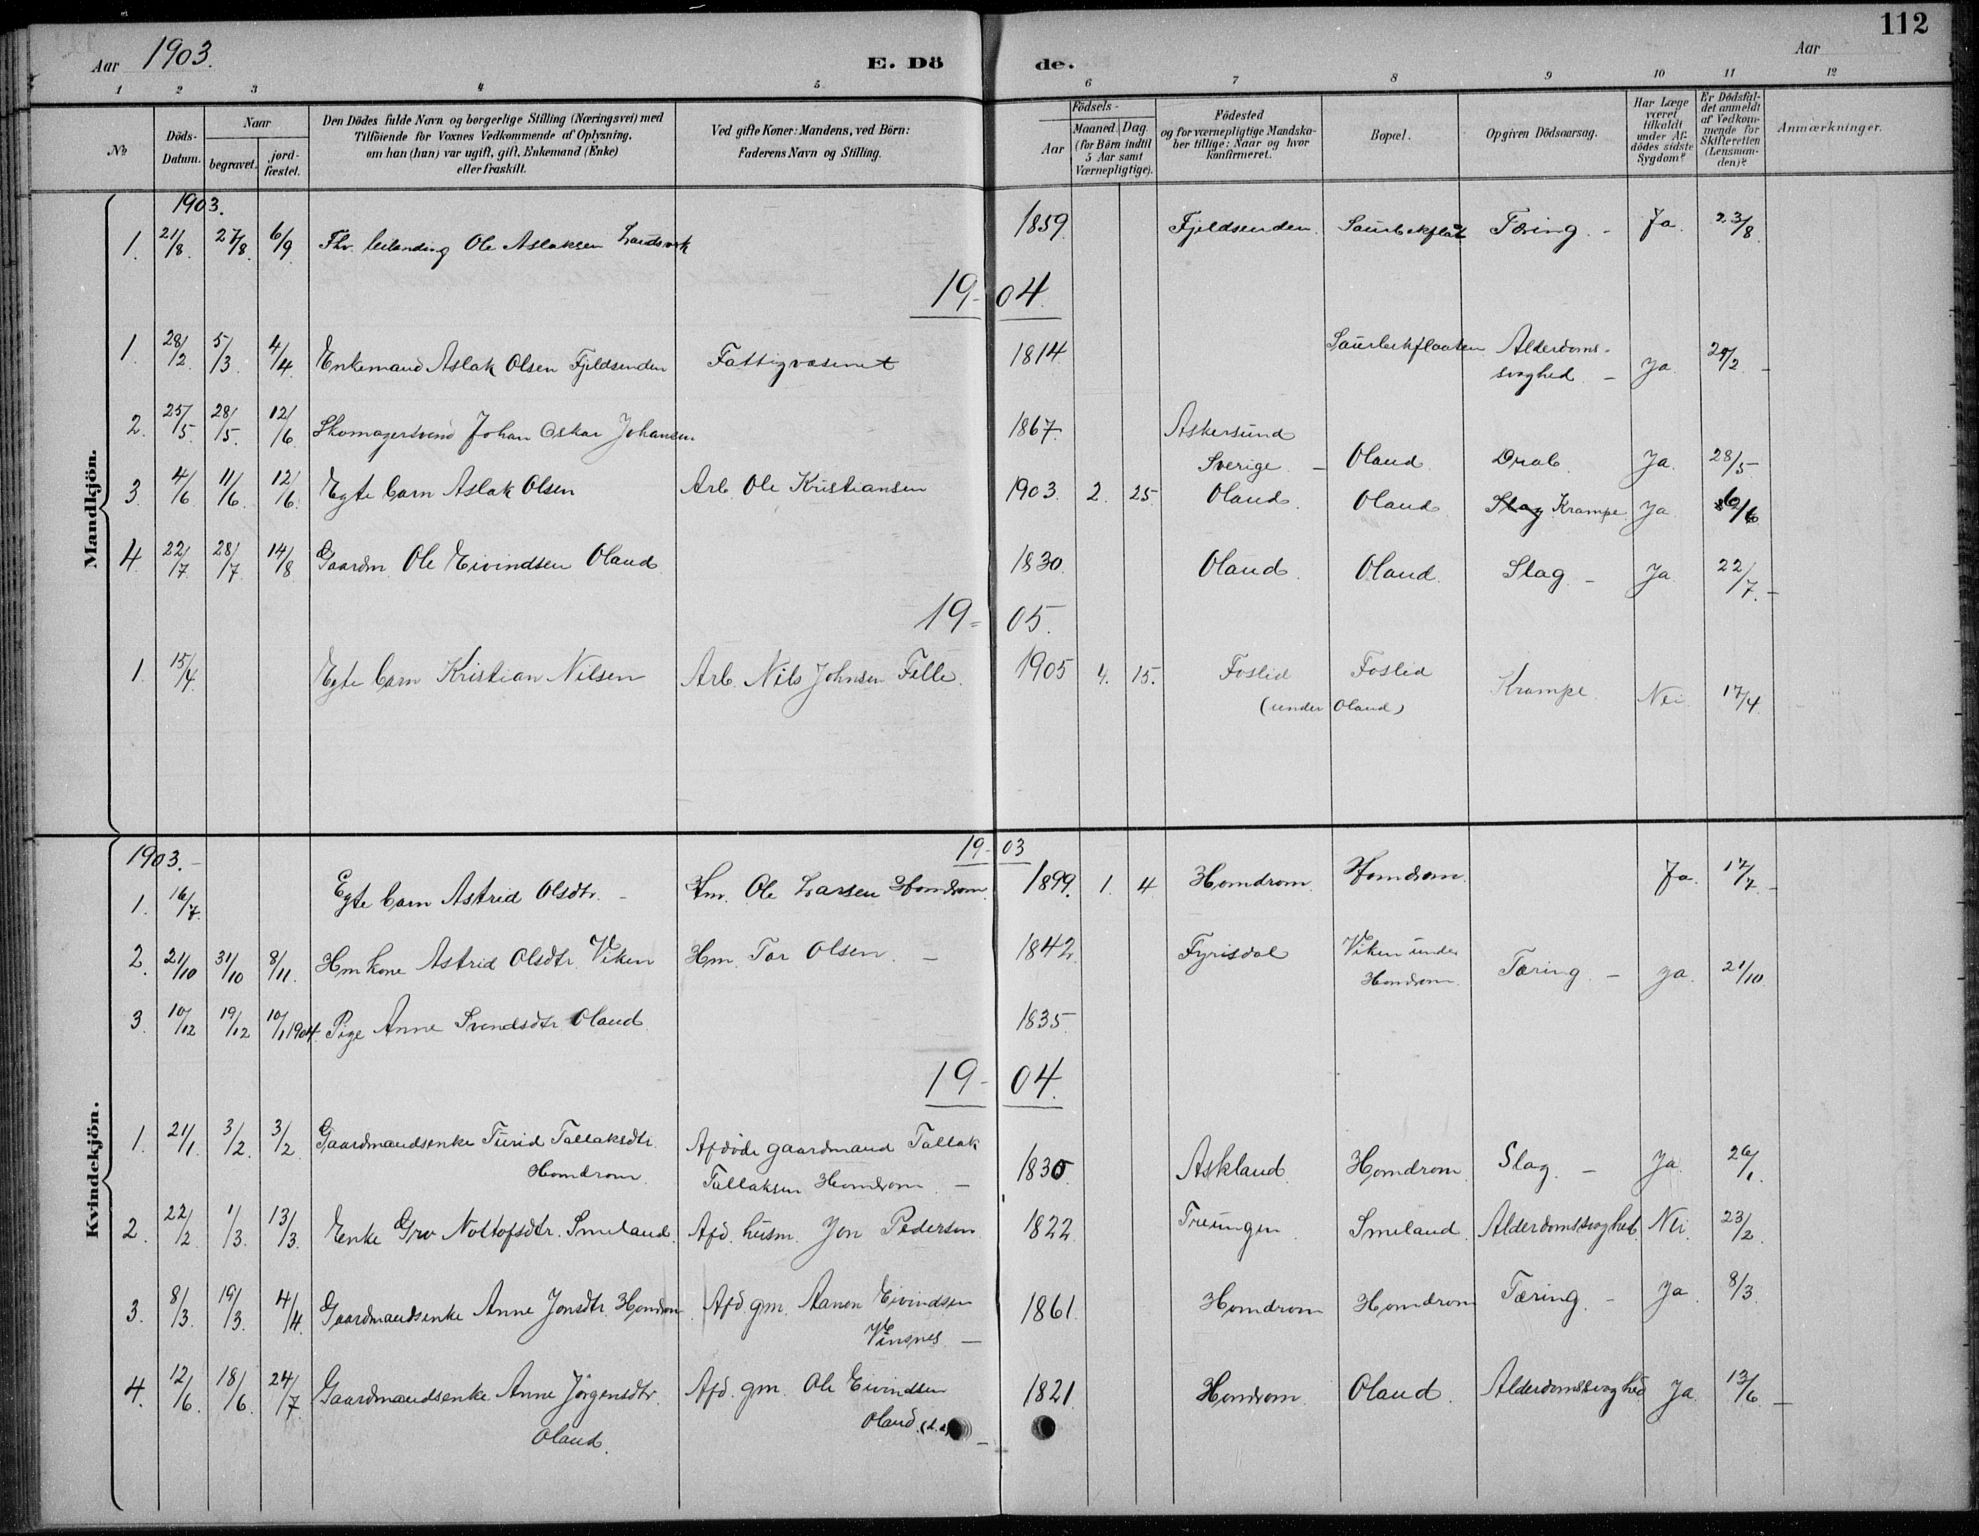 112
Aar 1903. E. Dö de. Aar
1 2 3 4 5 6 7 8 9 10 11 12
№
Döds-Datum.
Naar
begravet. jord-fæstet.
Den Dödes fulde Navn og borgerlige Stilling (Næringsvei) med
Tilföiende for Voxnes Vedkommende af Oplysning,
om han (hun) var ugift, gift, Enkemand (Enke)
eller fraskilt.
Ved gifte Koner: Mandens, ved Börn:
Faderens Navn og Stilling.
Födsels-
Aar Maaned. Dag.
(for Börn indtil
5 Aar samt
Værnepligtige).
Födested
og for værnepligtige Mandska-
ber tillige: Naar og hvor
konfirmeret.
Bopæl.
Opgiven Dödsaarsag.
Har Læge
været
tilkaldt
under Af-
dödes sidste
Sygdom?
Er Dödsfal-
det anmeldt
af Vedkom-
mende for
Skifteretten
(Lensman-
den)?
Anmærkninger.
Mandkjön.
1903.
1. 21/8. 27/8. 6/9 Ole Aslaksen 1859. Fjeldsenden. Tæring. - Ja. 23/8.
19-04.
1. 28/2. 5/3. 4/4. Enkemand Aslak Olsen Fjeldsenden Fattigvæsenet 1814 Saurbekflaaten Alderdoms-
svaghed. - Ja 29/2. -
2. 25/5. 28/5. 12/6 Skomagersvend Johan Oskar Johansen 1867. Askersund
Sverige. - Oland. Drab. Ja. 28/5-
3. 4/6 11/6. 12/6. Egte barn Aslak Olsen Arb. Ole Kristiansen 1903. 2. 25. Oland. Oland. Slag Krampe Ja /6
4. 22/7. 28/7. 14/8 Gaardm. Ole Eivindsen Oland 1830. Oland. Oland. Slag. - Ja 22/7. -
19-05.
1. 15/4. Egte barn Kristian Nilsen Arb. Nils Johnsen Felle. 1905 4. 15. Foslid Foslid Krampe. Nei. 17/4.
(under Oland)
Kvindekjön.
1903. - 19-03
1. 16/7. Egte barn Astrid Olsdtr. - Hm. Ole Larsen Homdrom. 1899. 1. 4 Homdrom. Homdrom. Ja. 17/7. -
2. 21/10 31/10 8/11. Hmkone Astrid Olsdtr. Viken Hm. Tor Olsen. - 1842. Fyrisdal Viken under
Homdrom. Tæring. - Ja. 21/10.
3. 10/12 19/12 10/1 1904 Pige Anne Svendsdtr. Oland 1835.
19-04.
1. 21/1. 3/2. 3/2. Gaardmandsenke Turid Tallaksdtr. Afdöde gaardmand Tallak
Homdrom. Tallaksen Homdrom. - 1830. Askland Homdrom. Slag. - Ja. 26/1.
2. 22/2 1/3. 13/3. Enke Gro Nottofsdtr. Smeland. Afd. husm. Jon Pedersen 1822. Treungen Smeland. Alderdomssvaghed. Nei. 23/2.
3. 8/3. 19/3. 4/4. Gaardmandsenke Anne Jonsdtr. Homdrom. Afd. gm. Aanon Eivindsen
Vinsnes. - 1861. Homdrom Homdrom Tæring. - Ja. 8/3.
4. 12/6. 18/6. 24/7. Gaardmandsenke Anne Jörgensdtr. Afd. gm. Ole Eivindsen
Oland. Oland. 1821. Homdrom Oland. Alderdomssvaghed Ja. 13/6. -